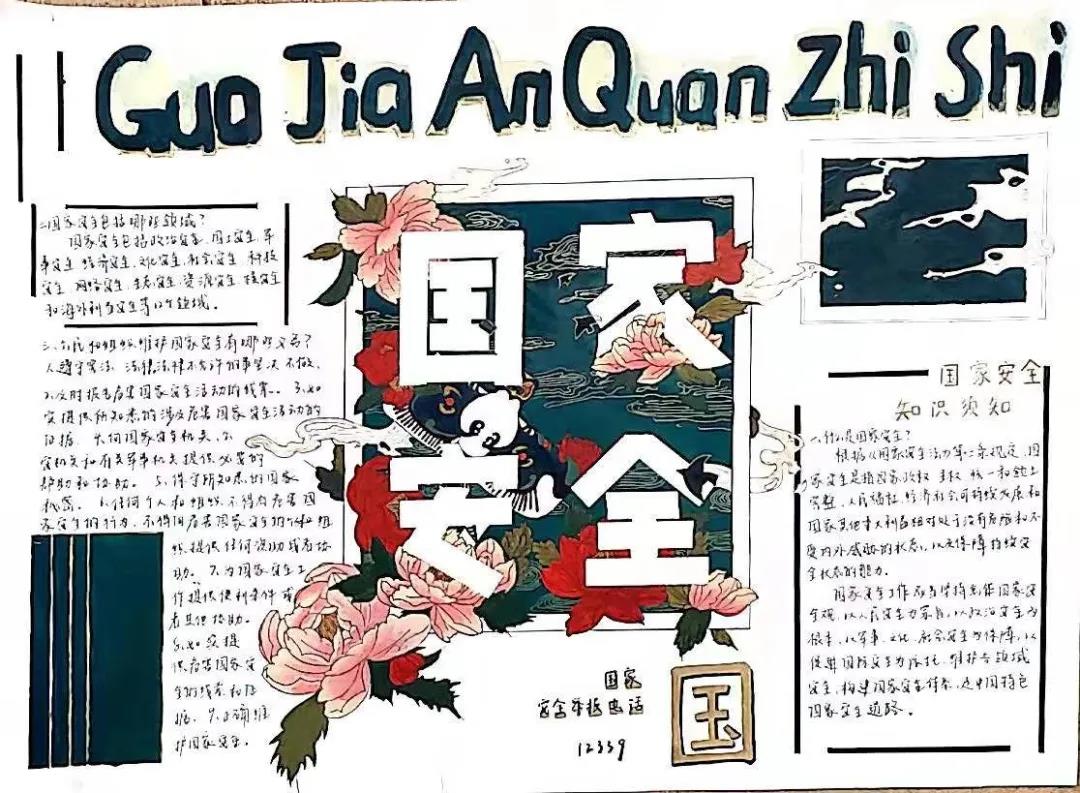 Guo Jia An Quan Zhi Shi
国家
安全
二、国家安全包括哪些领域?
国家安全包括政治安全、国土安全、军
事安全、经济安全、文化安全、社会安全、科技
安全、网络安全、生态安全、资源安全、核安全
和海外利益安全等12个领域。
三、公民和组织维护国家安全有哪些义务?
1.遵守宪法、法律法规
2.及时报告危害国家安全活动的线索。 3.如
实提供所知悉的涉及危害国家安全活动的
证据
安机关和有关军事机关提供必要的
帮助和协助。 5.保守所知悉的国家
秘密。 6.任何个人和组织不得有危害国
家安全的行为,不得向危害国家安全的个人和组
织提供任何资助或者协
助。 7.为国家安全工
作提供便利条件或
者其他协助。
8.如实提
供危害国家安
全的线索和证
据。 9.正确维
护国家安全。
国家安全
知识须知
一、什么是国家安全?
根据《国家安全法》第二条规定,国
家安全是指国家政权、主权、统一和领土
完整、人民福祉、经济社会可持续发展和
国家其他重大利益相对处于没有危险和不
受内外威胁的状态,以及保障持续安
全状态的能力。
国家安全工作应当坚持总体国家安
全观,以人民安全为宗旨,以政治安全为
根本,以军事、文化、社会安全为保障,以
促进国际安全为依托,维护各领域
安全,构建国家安全体系,走中国特色
国家安全道路。
国家
安全举报电话
12339
国